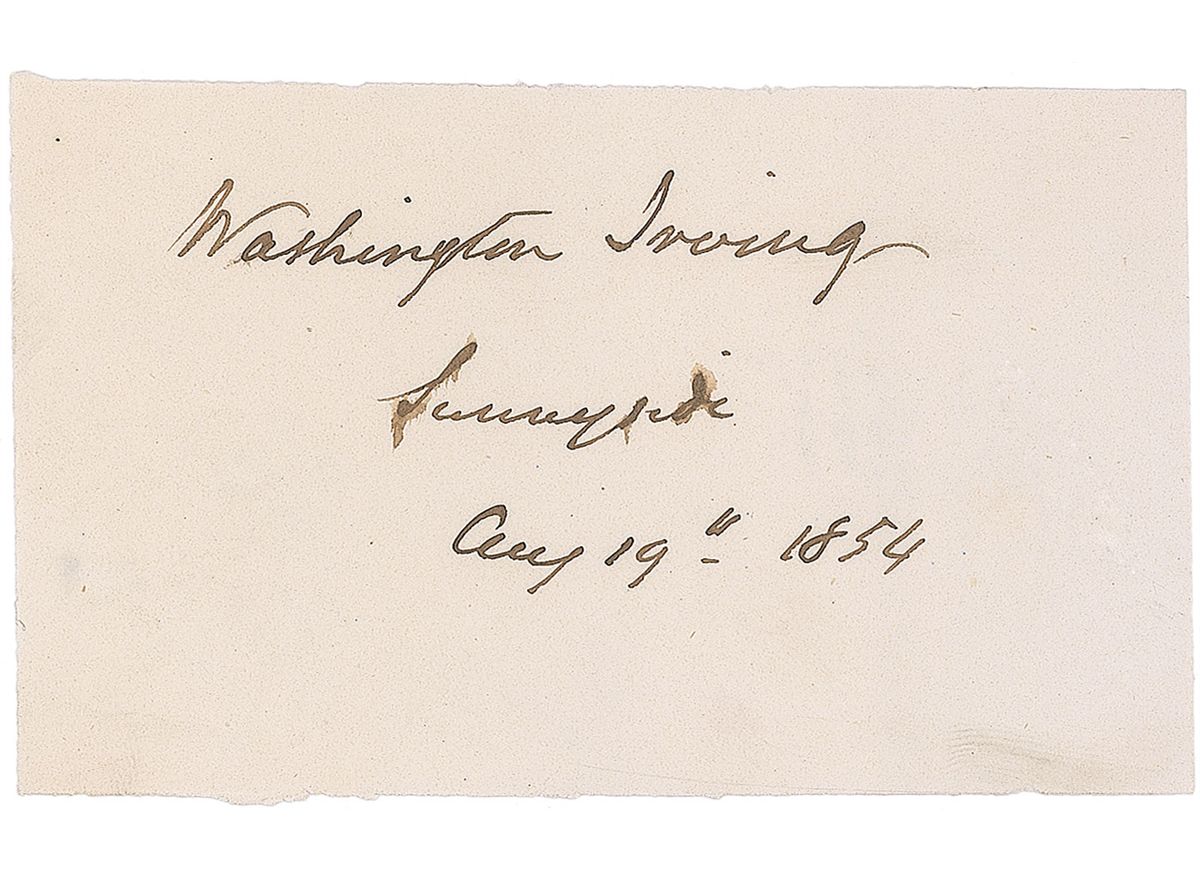 Washington Irving
Sunnyside
Aug 19th 1854